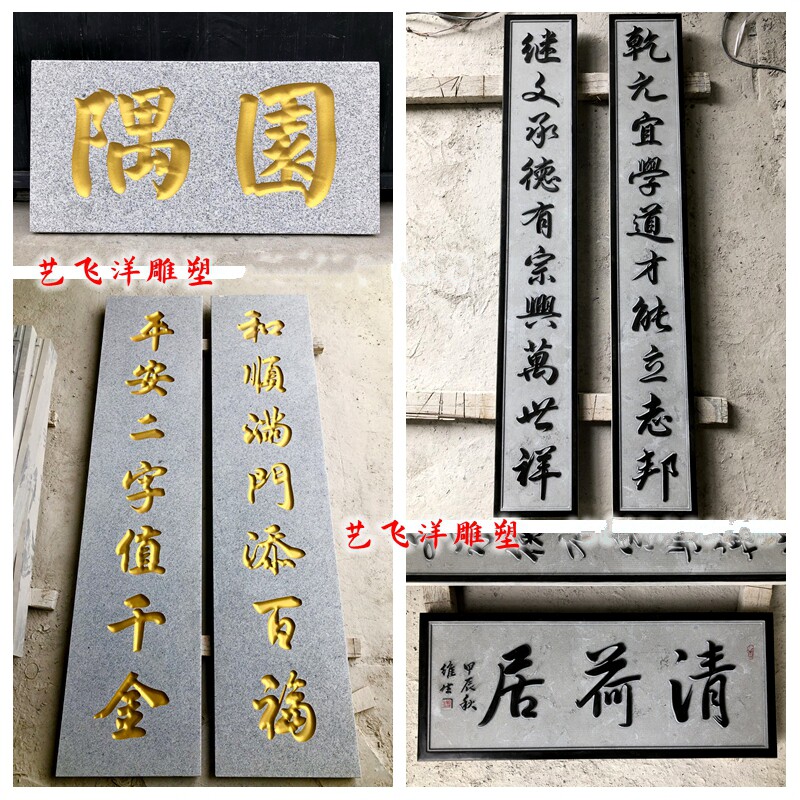 隅園
艺飞洋雕塑
乾元宜學道才能立志邦
继文承德有宗興萬世祥
和順满門添百福
平安二字值千金
艺飞洋雕塑
清荷居
甲辰秋